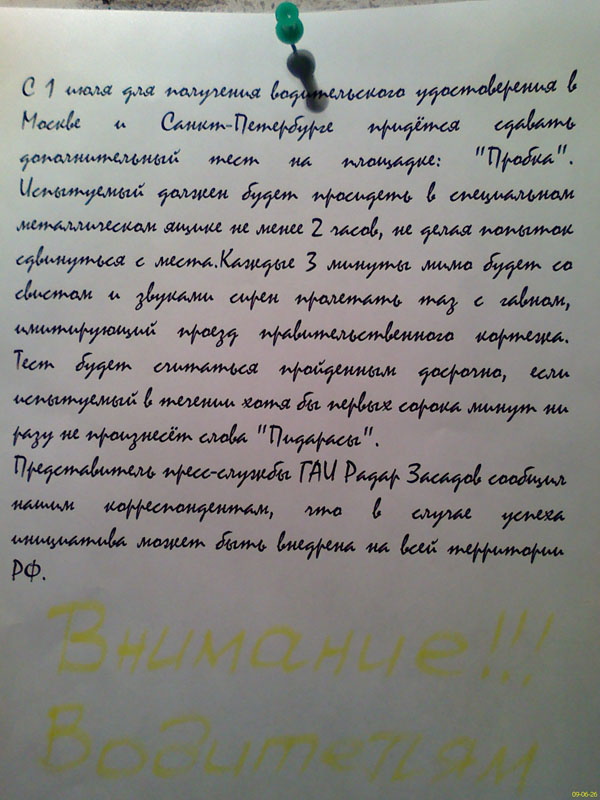 С 1 июля для получения водительского удостоверения в
Москве и Санкт-Петербурге придётся сдавать
дополнительный тест на площадке: "Пробка".
Испытуемый должен будет просидеть в специальном
металлическом ящике не менее 2 часов, не делая попыток
сдвинуться с места.Каждые 3 минуты мимо будет со
свистом и звуками сирен пролетать таз с гавном,
имитирующий проезд правительственного кортежа.
Тест будет считаться пройденным досрочно, если
испытуемый в течении хотя бы первых сорока минут ни
разу не произнесёт слова "Пидарасы".
Представитель пресс-службы ГАИ Радар Засадов сообщил
нашим корреспондентам, что в случае успеха
инициатива может быть внедрена на всей территории
РФ.
Внимание!!!
Водителям
09-06-26